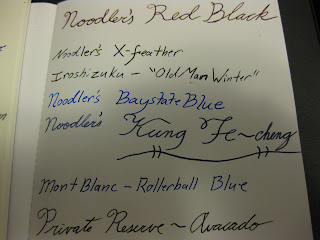 Noodler's Red Black
Noodler's X-feather
Iroshizuku - "Old Man Winter"
Noodler's Baystate Blue
Noodler's Kung Te~cheng
Mont Blanc - Rollerball Blue
Private Reserve ~ Avacado